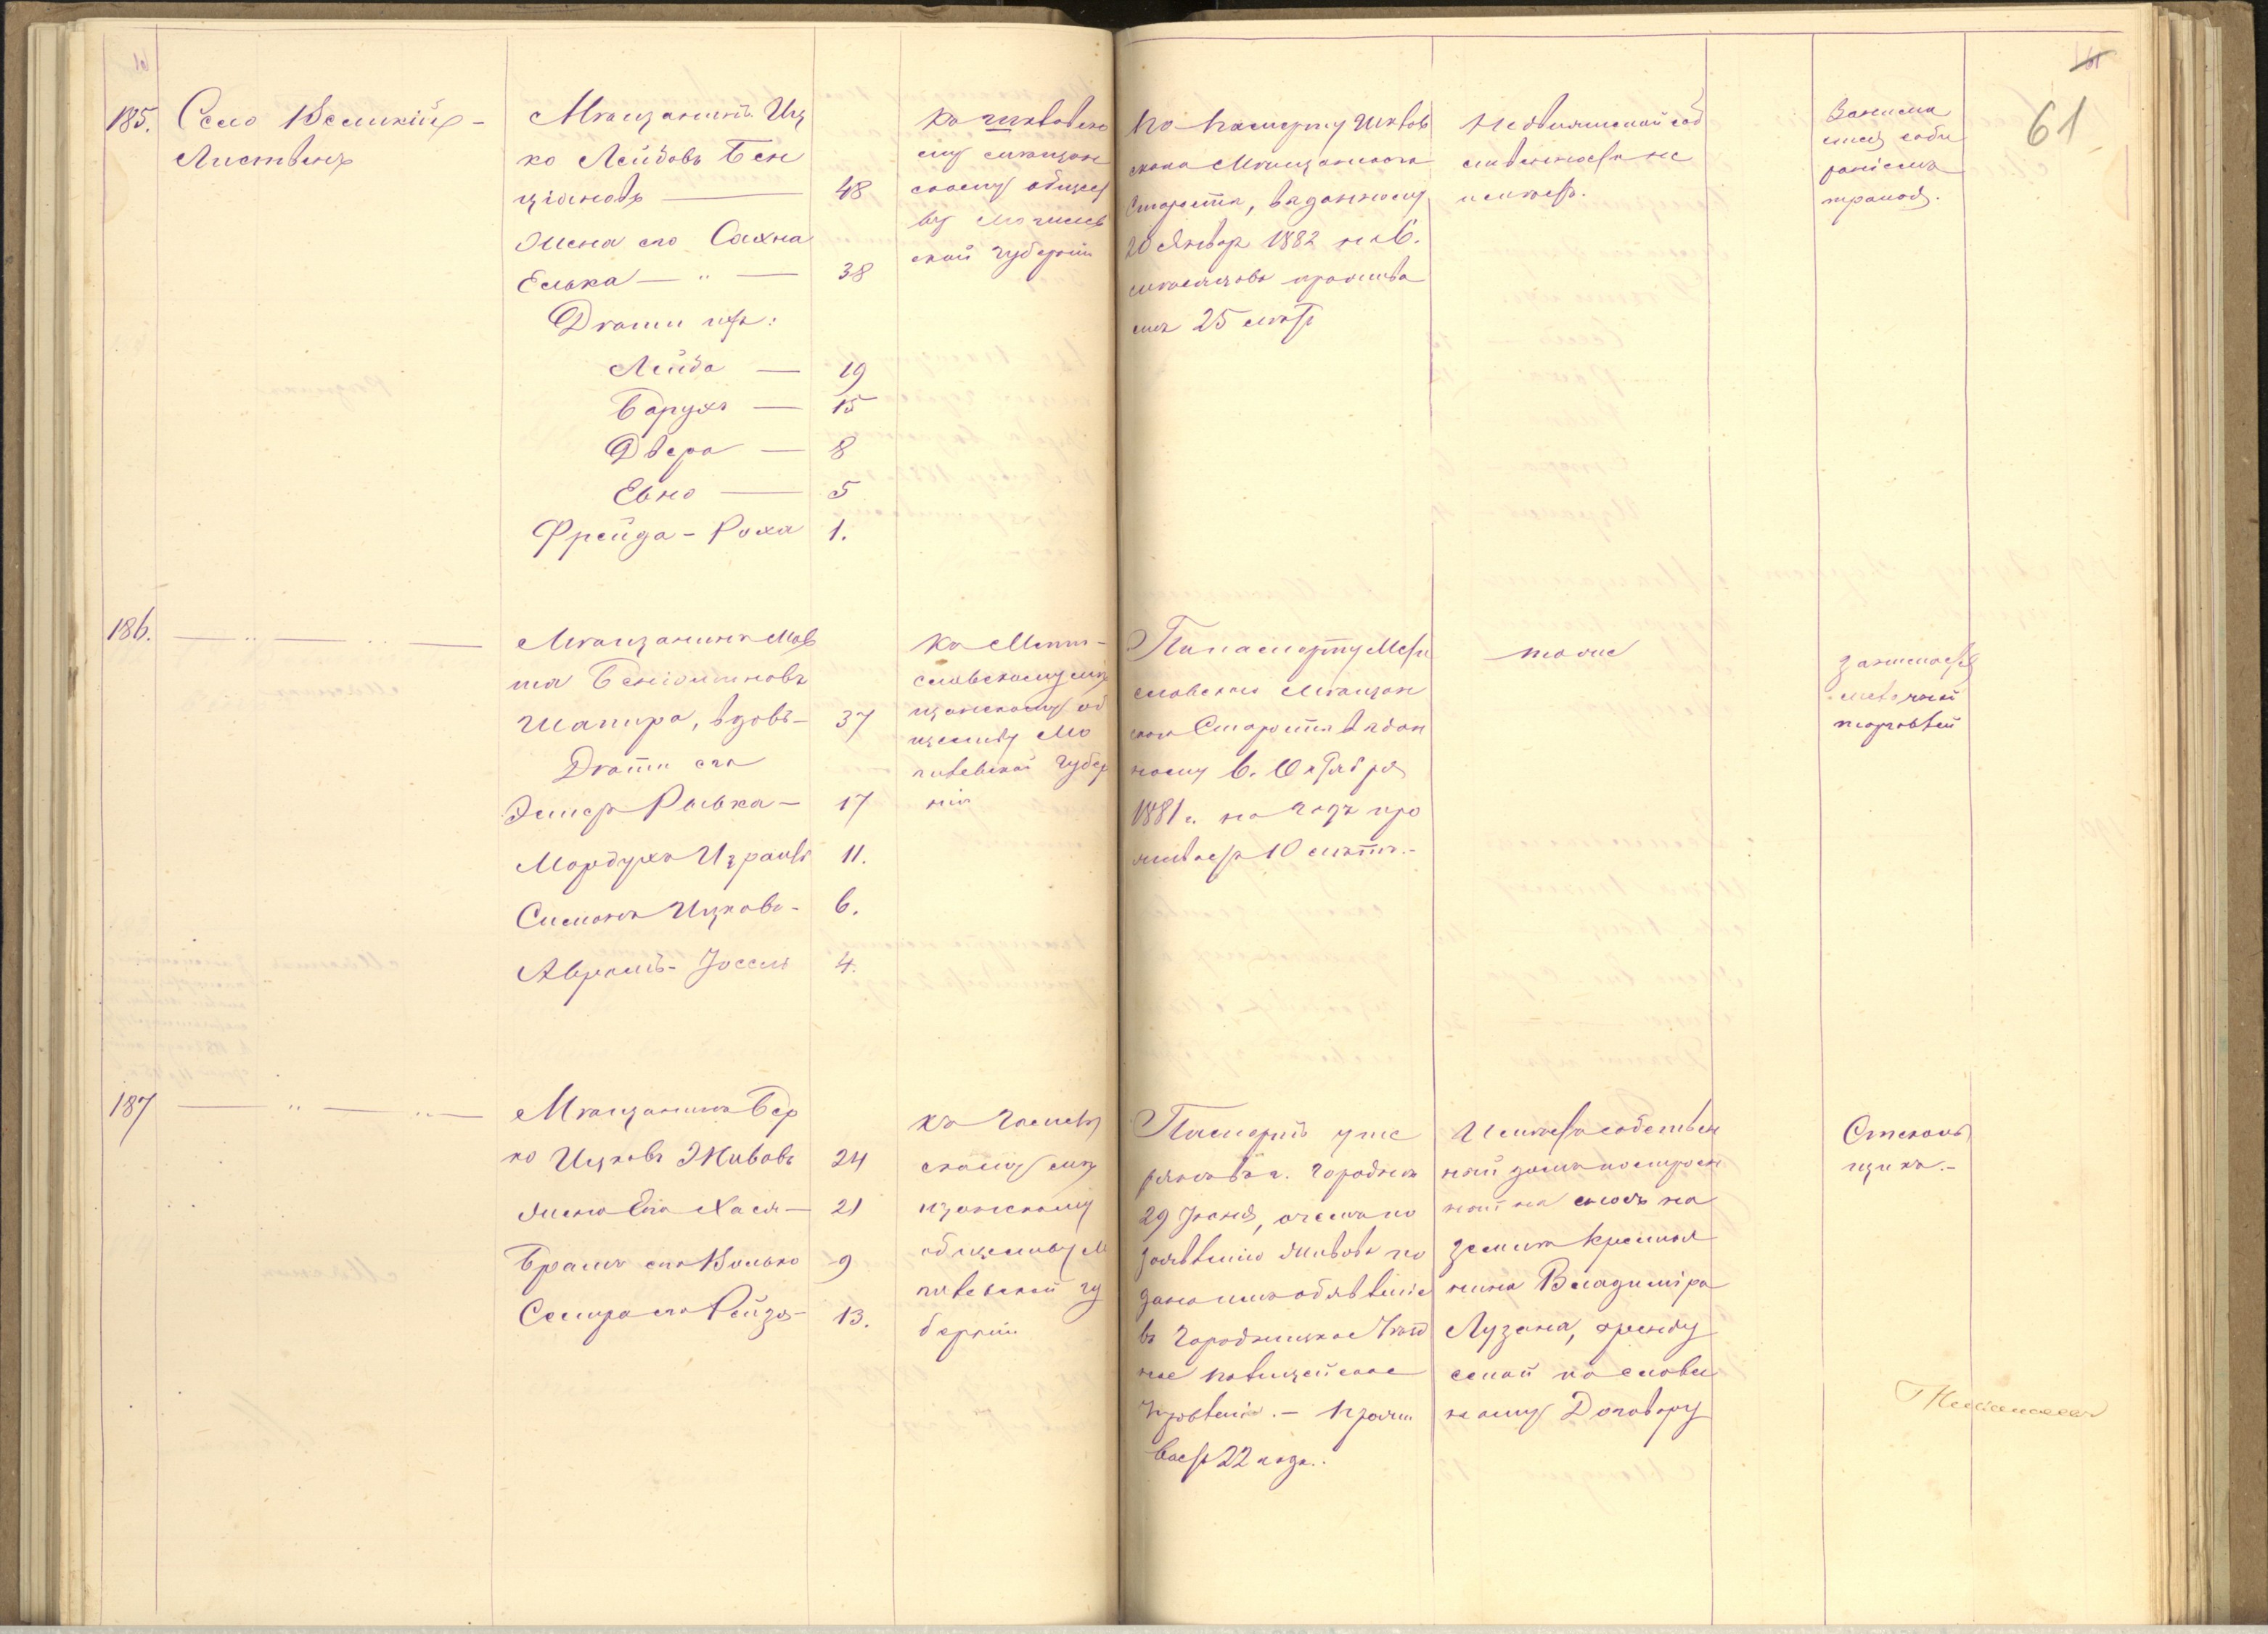 61
185.
Село Великій-
Лиственъ
Мѣщанинъ Иц
ко Лейбовъ Бен
ціоновъ — 48
Жена его Сахна
Елька — " — 38
Дѣти ихъ:
Лейба — 19
Борухъ — 15
Двера — 8
Евно — 5
Фрейда-Роха 1.
му мѣщан
скому общест
ву Могилев
ской губерніи
По паспорту Шклов
скаго Мѣщанскаго
Старосты, выданному
20 Января 1882 на 6.
мѣсяцовъ прожива
етъ 25 лѣтъ
Недвижимой соб
ственности не
имѣетъ.
Занима
ется соби
раніемъ
тряпокъ.
186. — " — " —
Мѣщанинъ Мов
ша Беніоминовъ
Шапиро, вдовъ — 37
Дѣти его
Эстеръ Рывка — 17
Мордухъ Израиль 11.
Симонъ Ицковъ - 6.
Аврамъ-Іоссель 4.
Къ Мсти-
славскому мѣ
щанскому об
ществу Мо
гилевской губер
ніи
По паспорту Мсти
славскаго мѣщан
скаго Старосты выдан
ному 6. Октября
1881 г. на годъ про
живаетъ 10 лѣтъ.-
тоже
занимается
мелочной
торговлей
187 — " — " —
Мѣщанинъ Бер
ко Ицковъ Живовъ 24
жена Его Хася — 21
Братъ его Волько 9
Сестра его Рейза — 13.
скому мѣ
щанскому
обществу Мо
гилевской гу
берніи
Паспортъ уте
рянъ въ г. Городнѣ
29 Іюня, о чемъ по
заявленію Живова по
дано имъ объявленіе
въ Городницкое Уѣзд
ное Полицейское
Управленіе.— Прожи
ваетъ 22 года.
Имѣетъ собствен
ный домъ построен
ный на сносъ на
землѣ крестья
нина Владиміра
Лузана, аренду
емой по словес
ному Договору
Стеколь
щикъ.-